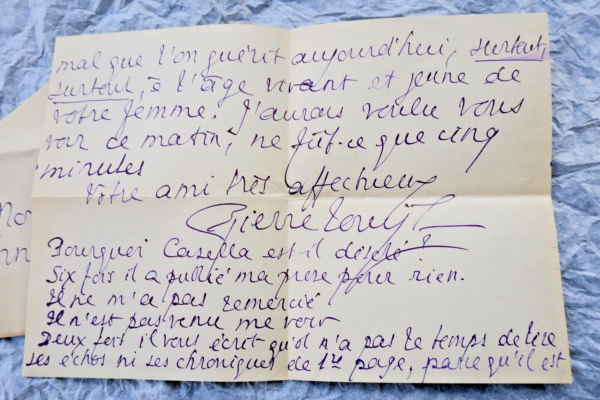 mal que l'on guérit aujourd'hui, surtout,
surtout, à l'âge vivant et jeune de
votre femme. J'aurais voulu vous
voir ce matin, ne fût-ce que cinq
minutes
Votre ami très affectueux
Pierre Louÿs
Pourquoi Casella est-il désolé?
Six fois il a publié ma prose pour rien.
Il ne m'a pas remercié
Il n'est pas venu me voir
Deux fois il vous écrit qu'il n'a pas le temps de lire
ses échos ni ses chroniques de 1re page, parce qu'il est